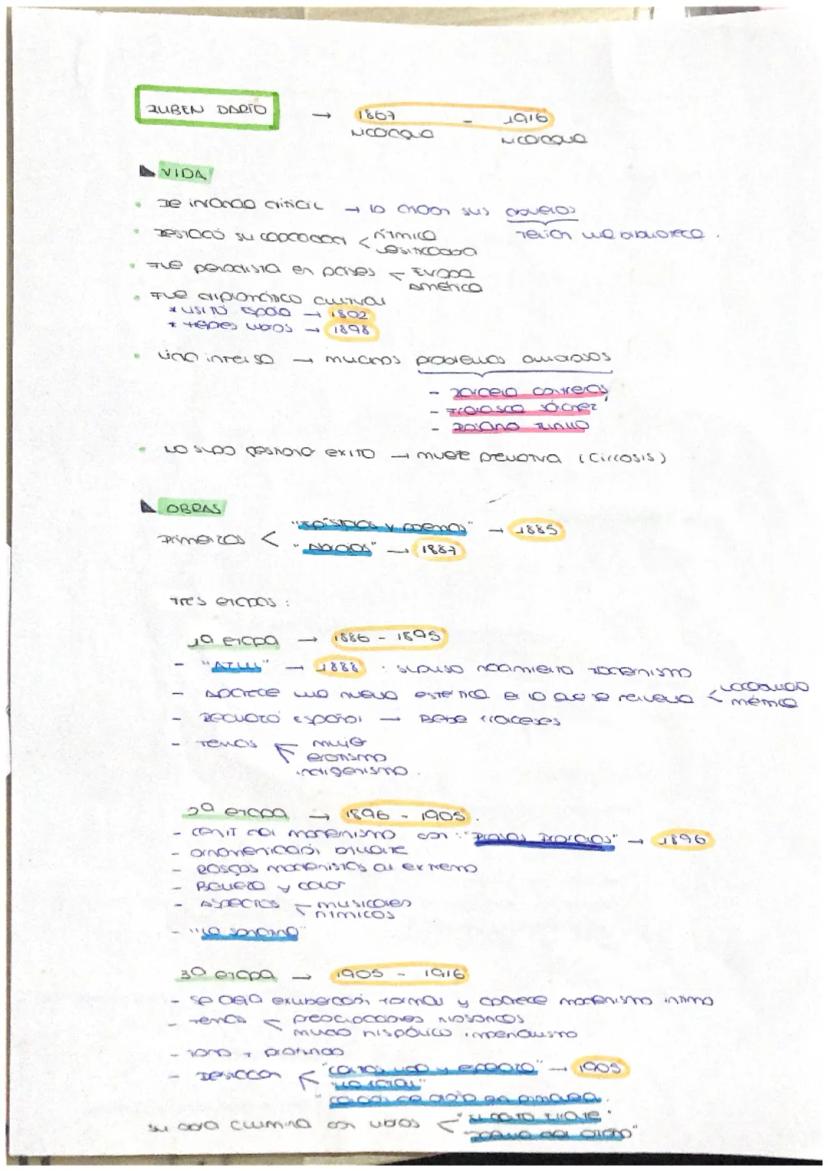 RUBEN DARÍO → 1867 - 1916
NICARAGUA NICARAGUA
VIDA
• De infancia difícil → lo crían sus abuelos
tenían una biblioteca.
• Destacó su capacidad < rítmica
versificadora
• Fue periodista en países < Europa
América
• Fue diplomático cultural
* visitó España → 1892
* 1898
• Vida intensa → muchos problemas amorosos
-
- Francisca Sánchez
- Rosario Murillo
• muerte prematura (Cirrosis)
OBRAS
Primeras < "Epístolas y poemas" → 1885
"Abrojos" → 1887
Tres etapas:
1ª etapa → 1886 - 1895
- "AZUL" → 1888 : supuso nacimiento modernismo
- Aparece una nueva estética en la que se renueva < vocabulario
métrica
- español → Bebe franceses
- Temas < mujer
erotismo
indigenismo.
2ª etapa → 1896 - 1905.
- Cenit del modernismo con: "Prosas Profanas" → 1896
- Ornamentación
- Rasgos modernistas al extremo
- Belleza y color
- Aspectos < musicales
rítmicos
- "La sonatina"
3ª etapa → 1905 - 1916
- Se deja exuberación formal y aparece modernismo íntimo
- Temas < preocupaciones filosóficas
mundo hispánico imperialismo
- Tono + profundo
- Destacan < "Cantos vida y esperanza" → 1905
"Lo fatal"
"Canción de otoño en primavera"
Su obra culmina con varios < "El canto errante"
"Poema del otoño"